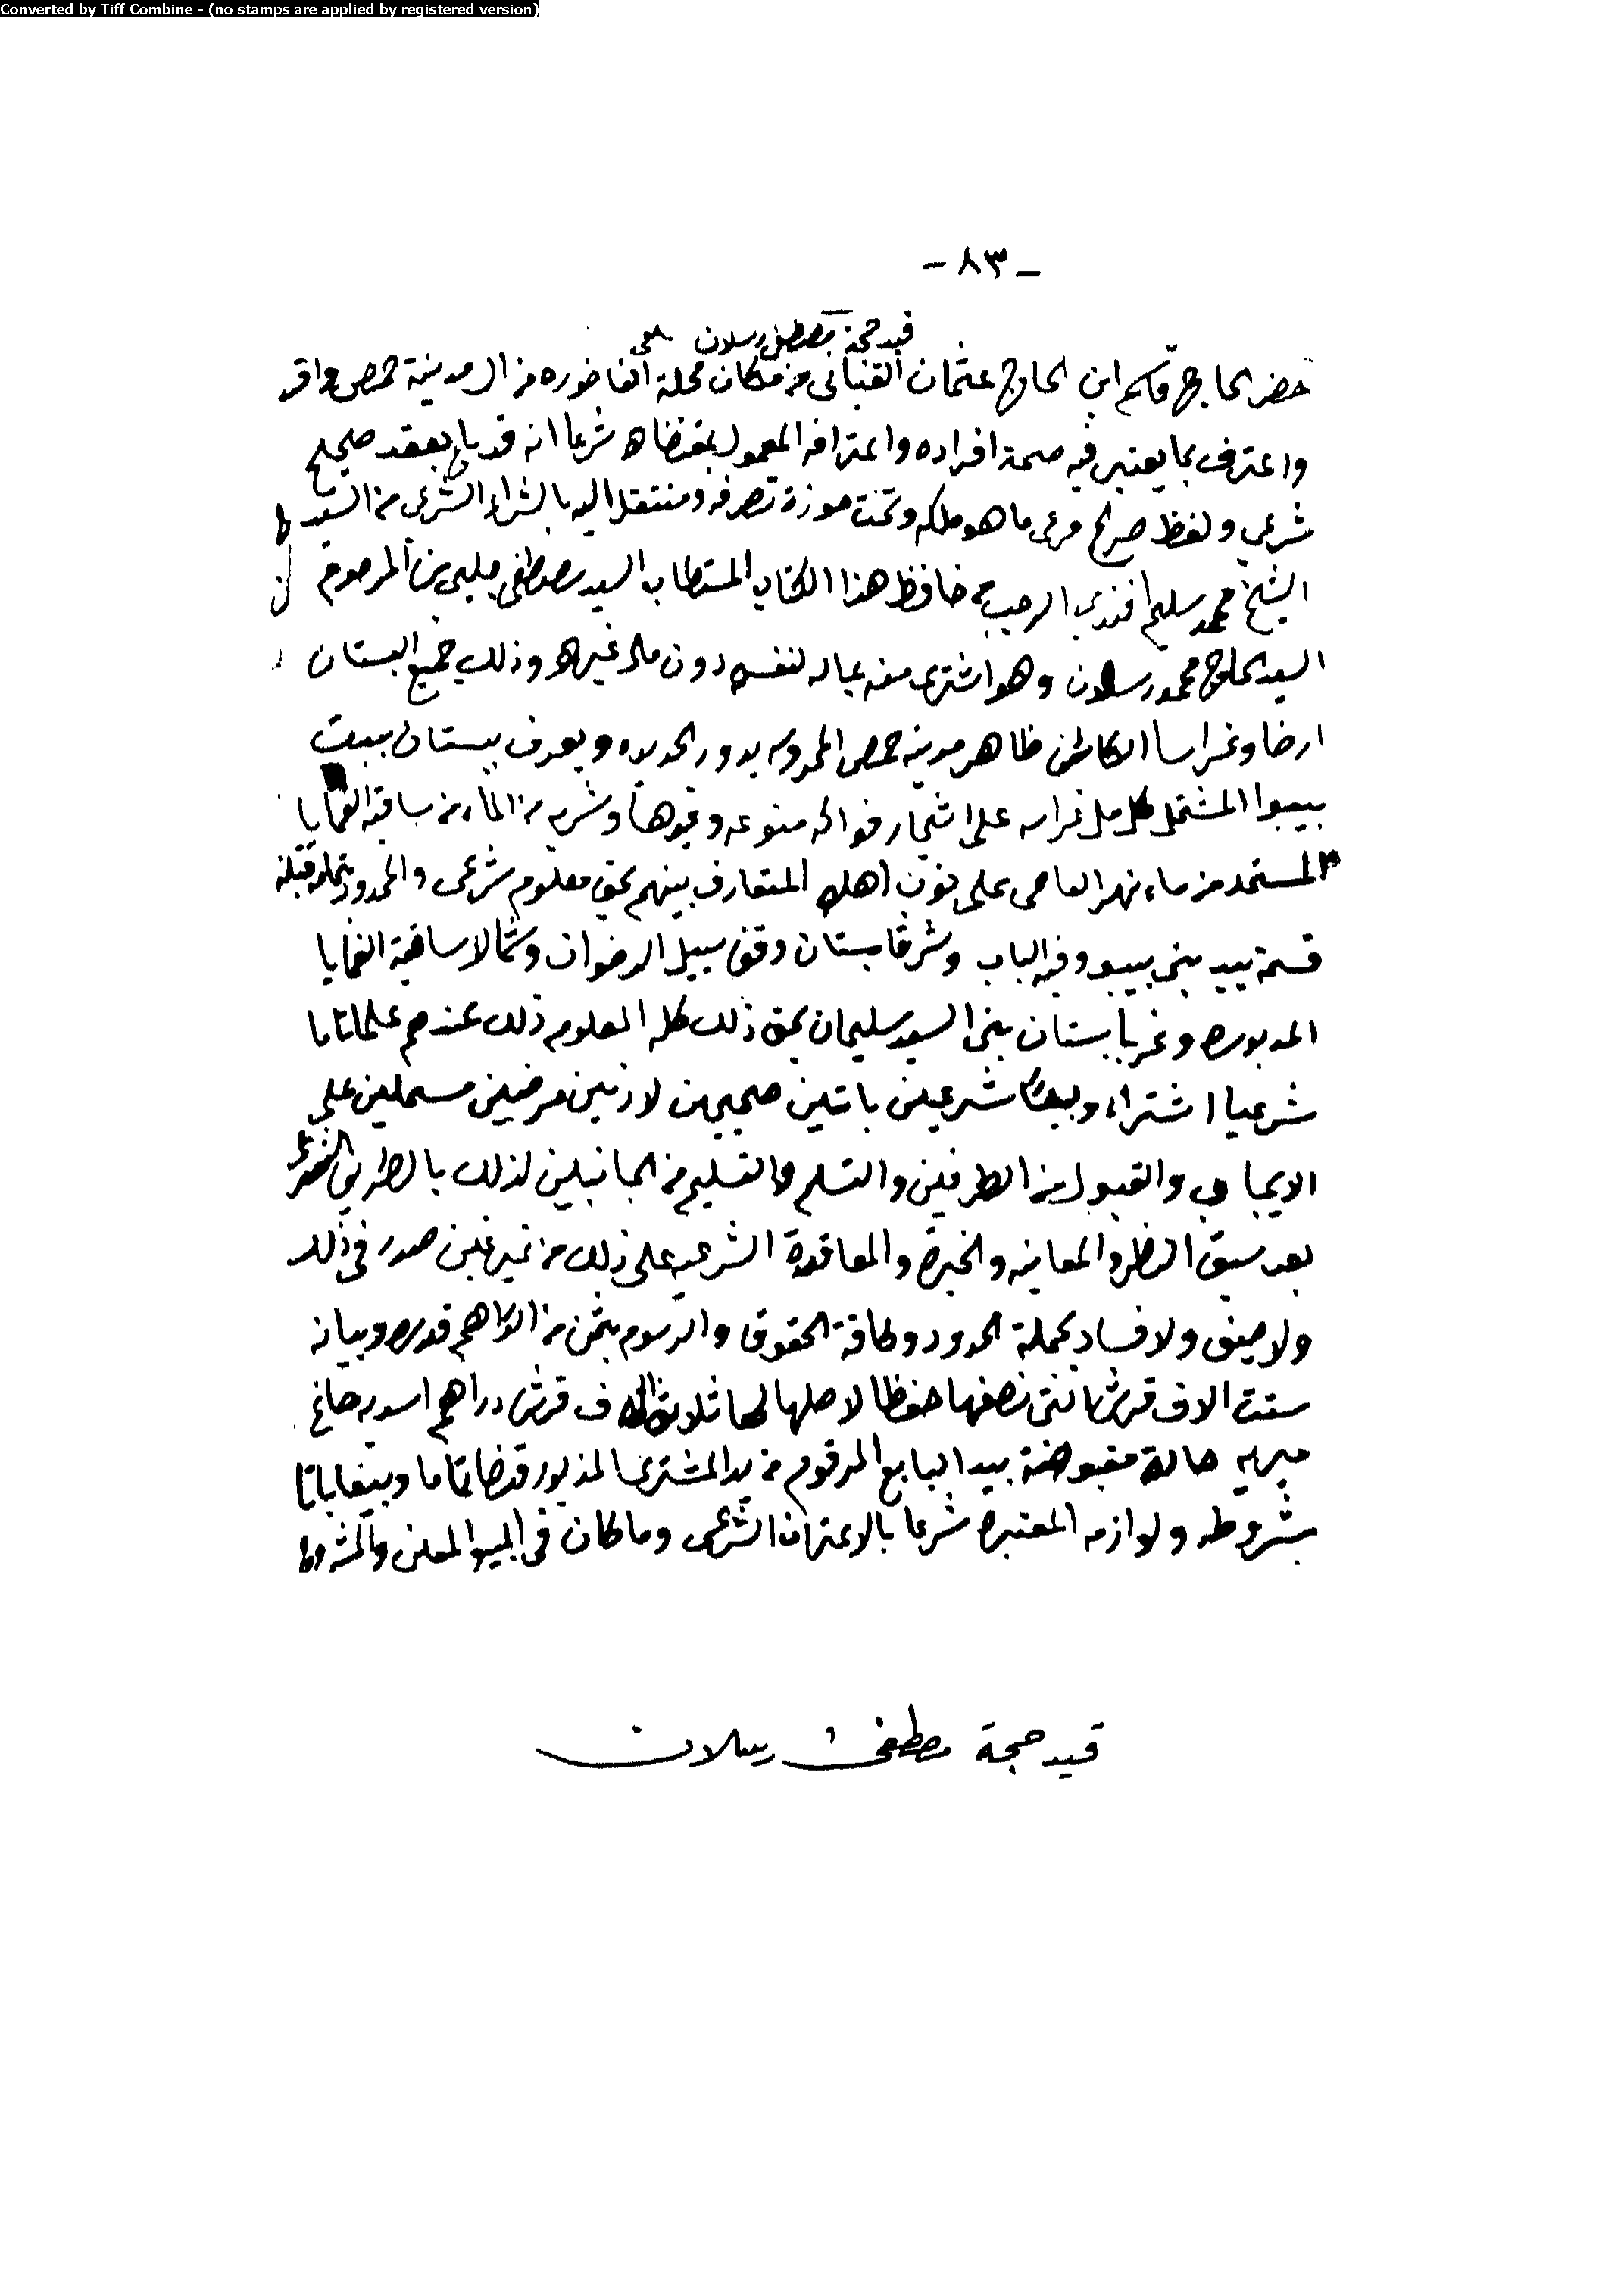 Converted by Tiff Combine - (no stamps are applied by registered version)
- ٨٣ -
قيد حجة مصطفى رسلان
حضر الحاج قاسم ابن الحاج عثمان القباني من سكان محلة الفاخوره من المدينة حمص واقر
واعترف بما يعتبر فيه صحة اقراره واعترافه المعمول بمقتضاه شرعا انه قد باع بعقد صحيح
شرعي ولفظ صريح مرعي ما هو ملكه وتحت حوزة تصرفه ومنتقل اليه بالشراء الشرعي من السيد
الشيخ محمد سليم افندي الرجب حافظ هذا الكتاب المستطاب السيد مصطفى جلبي بن المرحوم
السيد الحاج محمد رسلان وهو اشترى منه بماله لنفسه دون مال غيره وذلك جميع البستان
ارضا وغراسا الكائن ظاهر مدينة حمص المحروسه بدور الحديده ويعرف ببستان ببيت
بيبوا المشتمل كامل غراسه على اشجار فواكه متنوعه ونحوها وشربه من الماء من ساقية الغمايا
المستمد من ماء نهر العاصي على نوبن اهله المتعارف بينهم بحق معلوم شرعي والمحدود بتمامه قبلة
قسمة بيد بني بيبو وفيه الباب وشرقا بستان وقف سبيل الرضوان وشمالا ساقية الغمايا
المزبوره وغربا بستان بني السيد سليمان بحق ذلك كله المعلوم ذلك عندهم علما تاما
شرعيا اشتراء وبيعا شرعيين باتين صحيحين لازمين مرضيين مشتملين على
الايجاب والقبول من الطرفين والتسلم والتسليم من الجانبين لذلك بالطريق الشرعي
بعد سبق النظر والمعاينه والخبره والمعاقدة الشرعيه على ذلك من غير غبن صدر في ذلك
ولا حيف ولا فساد بجملة الحدود وكافة الحقوق والرسوم بثمن من الدراهم قدره وبيانه
ستت الاف قرشا تنى نصفها حفظا لاصلها لها ثلاثة الاف قرش دراهم اسديه صاغ
ميريه حالة مقبوضة بيد البايع المرقوم من يد المشتري المذبور قبضا تاما وبيعا باتا
بشروطه ولوازمه المعتبره شرعا بالاعتراف الشرعي وما كان في المبيع المعلن والمشروط
قيد حجة مصطفى رسلان